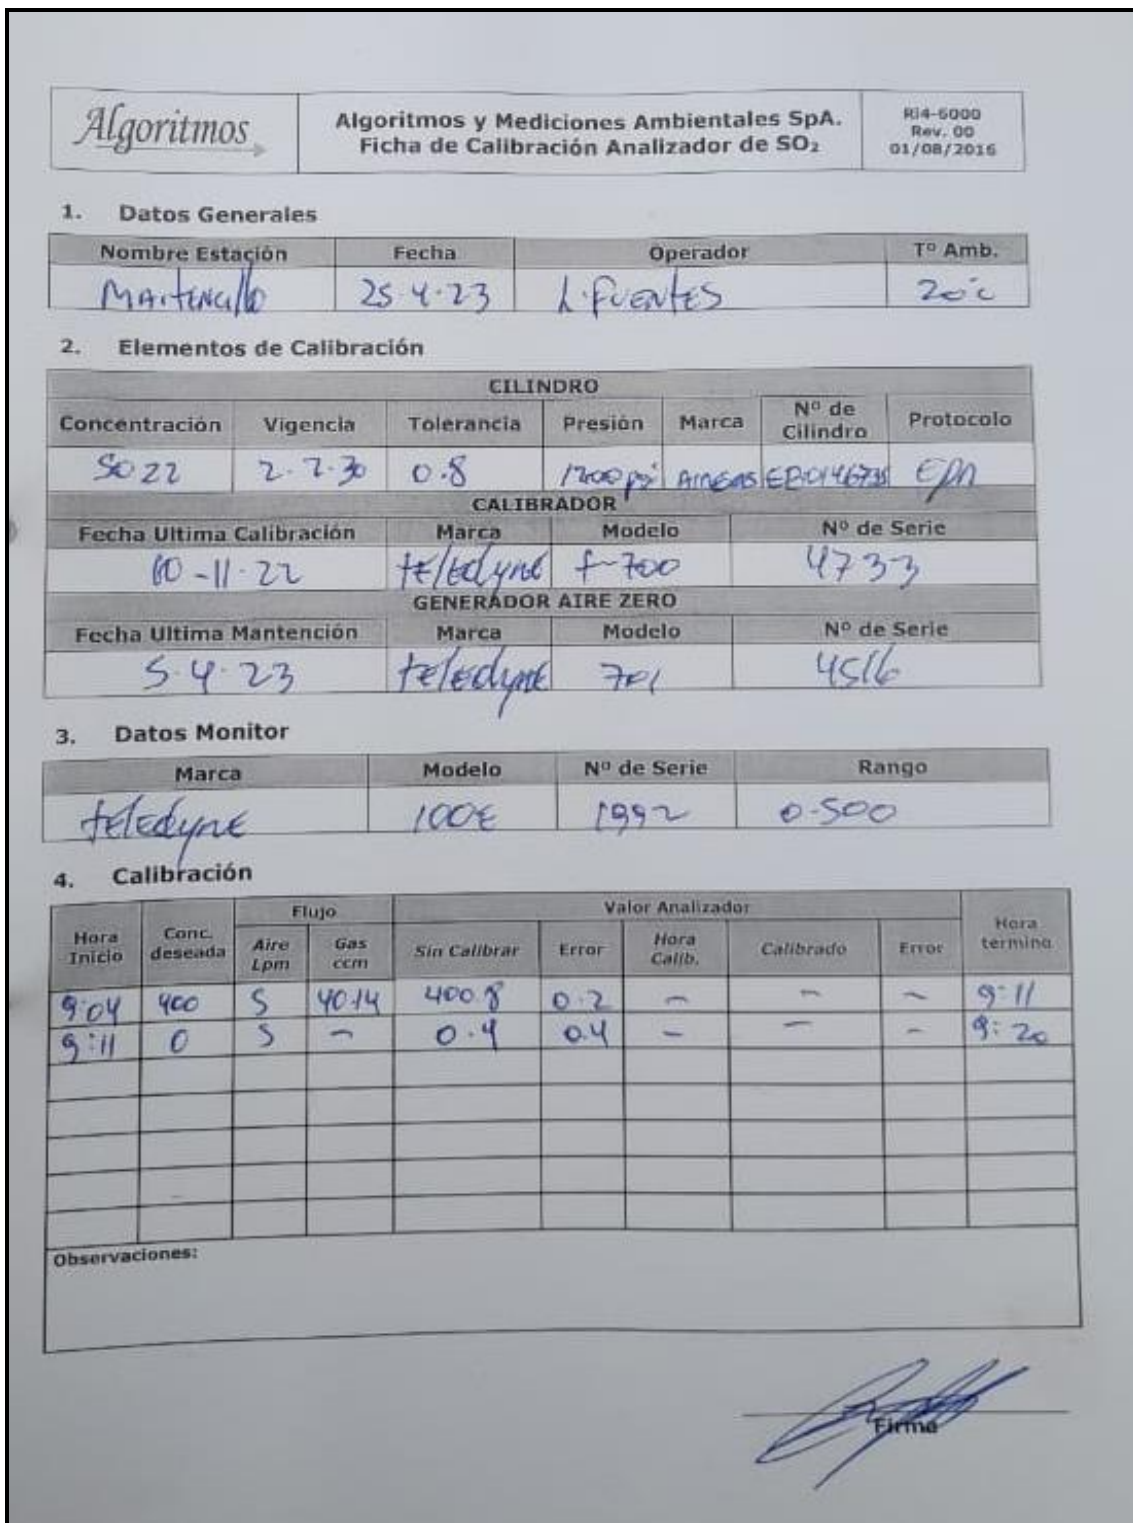 Algoritmos
Algoritmos y Mediciones Ambientales SpA.
Ficha de Calibración Analizador de SO₂
RI4-6000
Rev. 00
01/08/2016
1. Datos Generales
Nombre Estación Fecha Operador Tº Amb.
Maitencillo 25.4.23 L. FUENTES 20°C
2. Elementos de Calibración
CILINDRO
Concentración Vigencia Tolerancia Presión Marca Nº de Cilindro Protocolo
5022 2.2.30 0.8 1200 psi AIRGAS EPA
CALIBRADOR
Fecha Ultima Calibración Marca Modelo Nº de Serie
10-11-22 teledyne t-700 4733
GENERADOR AIRE ZERO
Fecha Ultima Mantención Marca Modelo Nº de Serie
5.4.23 teledyne 701 4516
3. Datos Monitor
Marca Modelo Nº de Serie Rango
teledyne 100E 1992 0-500
4. Calibración
Hora Inicio Conc. deseada Flujo Valor Analizador Hora termino
Aire Lpm Gas ccm Sin Calibrar Error Hora Calib. Calibrado Error
9:04 400 5 40.14 400.8 0.2 - - - 9:11
9:11 0 5 - 0.4 0.4 - - - 9:20
Observaciones:
Firma